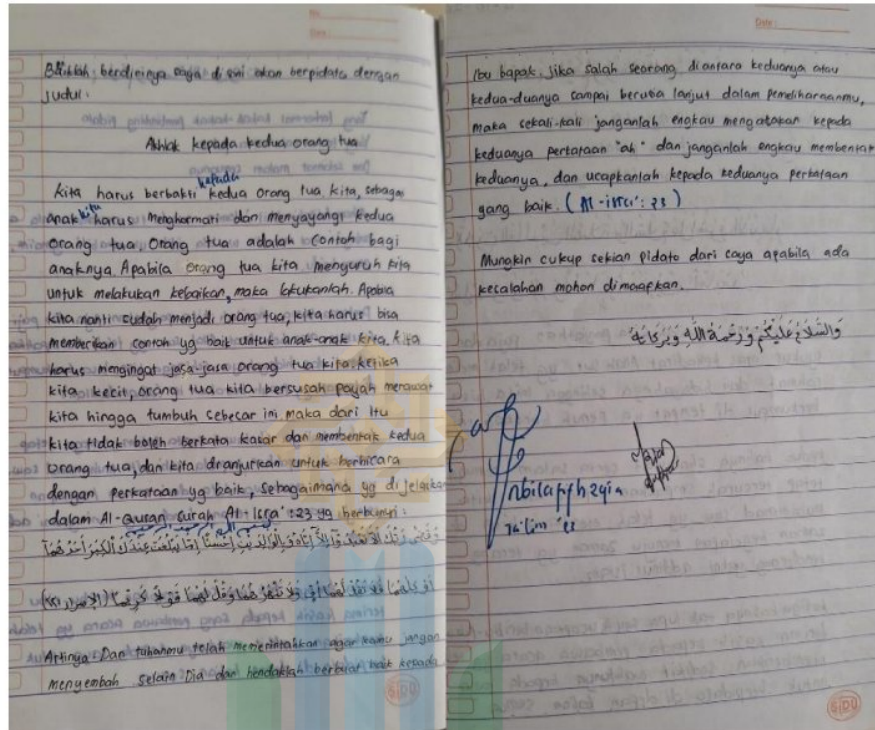 Baiklah, berdirinya saya di sini akan berpidato dengan
judul :
Akhlak kepada kedua orang tua
kita harus berbakti kepada kedua orang tua kita, sebagai
anak kita harus menghormati dan menyayangi kedua
orang tua, Orang tua adalah contoh bagi
anaknya. Apabila orang tua kita menyuruh kita
untuk melakukan kebaikan, maka lakukanlah. Apabia
kita nanti sudah menjadi orang tua, kita harus bisa
memberikan contoh yg baik untuk anak-anak kita. kita
harus mengingat jasa-jasa orang tua kita. ketika
kita kecil, orang tua kita bersusah payah merawat
kita hingga tumbuh sebesar ini maka dari itu
kita tidak boleh berkata kasar dan membentak kedua
orang tua, dan kita dianjurkan untuk berbicara
dengan perkataan yg baik, sebagaimana yg dijelaskan
dalam Al-Quran surah Al-Isra' : 23 yg berbunyi :
Artinya : Dan tuhanmu telah memerintahkan agar kamu jangan
menyembah selain Dia dan hendaklah berbuat baik kepada
SIDU
Date :
Ibu bapak. Jika salah seorang diantara keduanya atau
kedua-duanya sampai berusia lanjut dalam pemeliharaanmu,
maka sekali-kali janganlah engkau mengatakan kepada
keduanya perkataan "ah" dan janganlah engkau membentak
keduanya, dan ucapkanlah kepada keduanya perkataan
yang baik. (Al-isra' : 23)
Mungkin cukup sekian pidato dari saya apabila ada
kesalahan mohon dimaafkan.
وَالسَّلَامُ عَلَيْكُمْ وَرَحْمَةُ اللَّهِ وَبَرَكَاتُهُ
SIDU